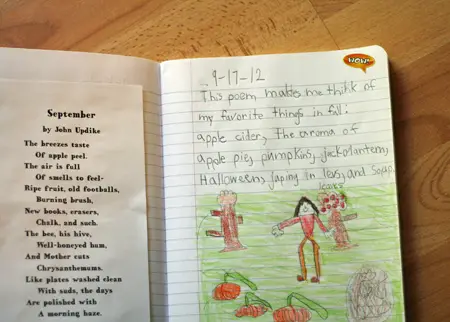 September
by John Updike
The breezes taste
Of apple peel.
The air is full
Of smells to feel-
Ripe fruit, old footballs,
Burning brush,
New books, erasers,
Chalk, and such.
The bee, his hive,
Well-honeyed hum,
And Mother cuts
Chrysanthemums.
Like plates washed clean
With suds, the days
Are polished with
A morning haze.
WOW!
9-17-12
This poem makes me think of
my favorite things in fall:
apple cider, the aroma of
apple pies, pumpkins, jackolanterns,
Halloween, juping in and soup.
leaves